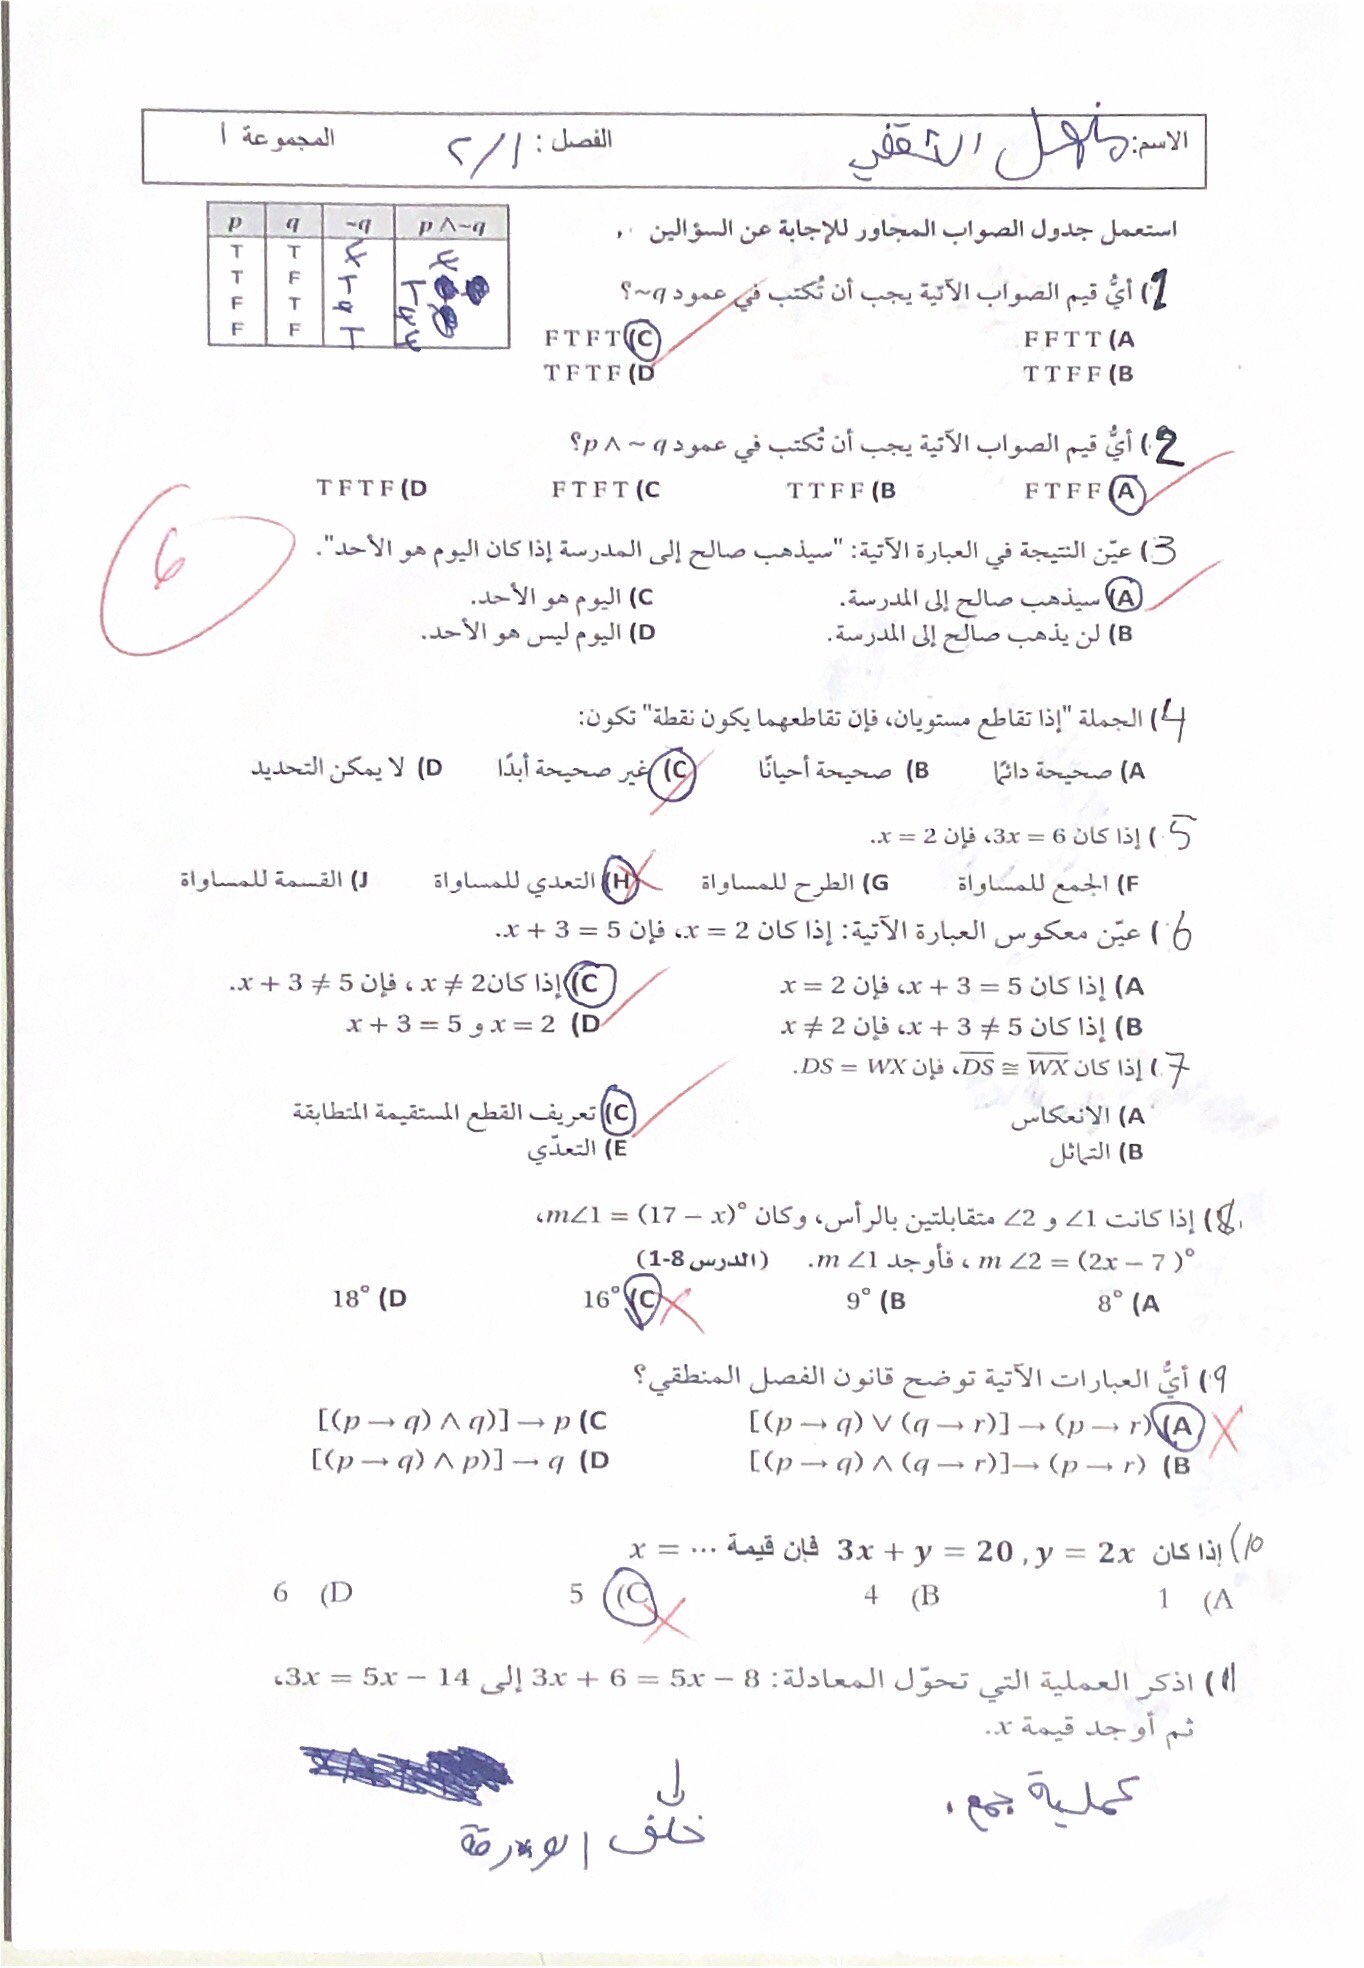 الاسم: الثقفي الفصل : ٢/١ المجموعة ١
استعمل جدول الصواب المجاور للإجابة عن السؤالين
p q ~q p ∧ ~q
T T F F
T F T T
F T F F
F F T F
1) أيُّ قيم الصواب الآتية يجب أن تُكتب في عمود ~q؟
A) F F T T C) F T F T
B) T T F F D) T F T F
2) أيُّ قيم الصواب الآتية يجب أن تُكتب في عمود p ∧ ~q؟
A) F T F F B) T T F F C) F T F T D) T F T F
6
3) عيّن النتيجة في العبارة الآتية: "سيذهب صالح إلى المدرسة إذا كان اليوم هو الأحد".
A) سيذهب صالح إلى المدرسة. C) اليوم هو الأحد.
B) لن يذهب صالح إلى المدرسة. D) اليوم ليس هو الأحد.
4) الجملة "إذا تقاطع مستويان، فإن تقاطعهما يكون نقطة" تكون:
A) صحيحة دائمًا B) صحيحة أحيانًا C) غير صحيحة أبدًا D) لا يمكن التحديد
5) إذا كان 3x = 6، فإن x = 2.
F) الجمع للمساواة G) الطرح للمساواة H) التعدي للمساواة J) القسمة للمساواة
6) عيّن معكوس العبارة الآتية: إذا كان x = 2، فإن x + 3 = 5.
A) إذا كان x + 3 = 5، فإن x = 2 C) إذا كان x ≠ 2 ، فإن x + 3 ≠ 5.
B) إذا كان x + 3 ≠ 5، فإن x ≠ 2 D) x = 2 و x + 3 = 5
7) إذا كان DS ≅ WX، فإن DS = WX.
A) الانعكاس C) تعريف القطع المستقيمة المتطابقة
B) التماثل E) التعدّي
8) إذا كانت ∠1 و ∠2 متقابلتين بالرأس، وكان m∠1 = (17 − x)°،
m ∠2 = (2x − 7 )° ، فأوجد m ∠1. (الدرس 8-1)
A) 8° B) 9° C) 16° D) 18°
9) أيُّ العبارات الآتية توضح قانون الفصل المنطقي؟
A) [(p → q) ∨ (q → r)] → (p → r) C) [(p → q) ∧ q)] → p
B) [(p → q) ∧ (q → r)] → (p → r) D) [(p → q) ∧ p)] → q
10) إذا كان 3x + y = 20 , y = 2x فإن قيمة x = ...
A) 1 B) 4 C) 5 D) 6
11) اذكر العملية التي تحوّل المعادلة: 3x + 6 = 5x − 8 إلى 3x = 5x − 14،
ثم أوجد قيمة x.
عملية جمع .
خلف الورقة